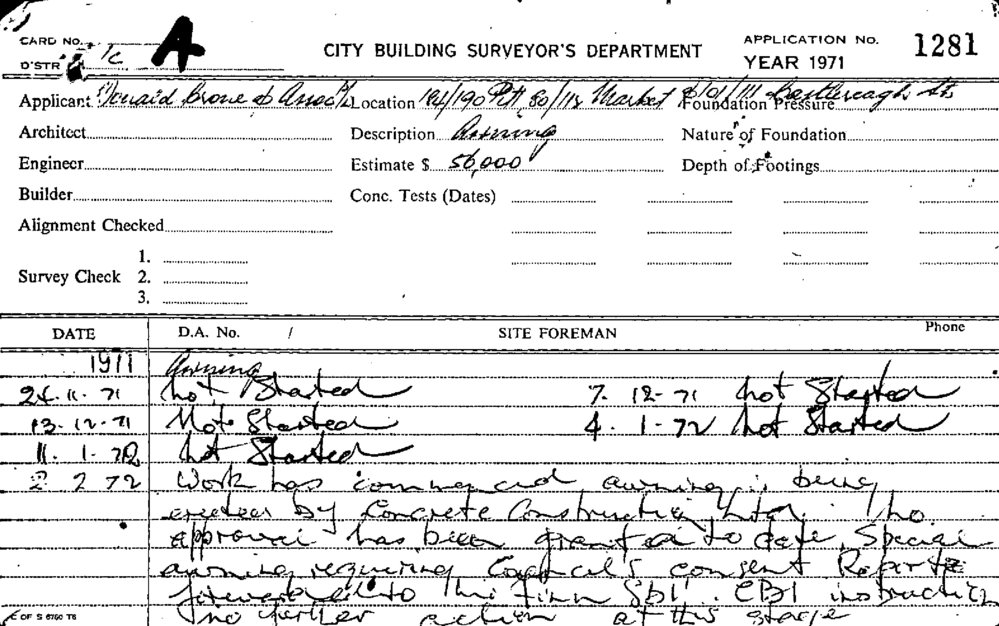 CARD NO.
A
CITY BUILDING SURVEYOR'S DEPARTMENT
APPLICATION No. 1281
D'STR
YEAR 1971
Applicant Donald Crone & Assoc Location 184/190 Pitt, 80/112 Market & 101/111 Castlereagh Sts Foundation Pressure
Architect Description Awning Nature of Foundation
Engineer Estimate $ 56,000 Depth of Footings
Builder Conc. Tests (Dates)
Alignment Checked
1.
Survey Check 2.
3.
DATE D.A. No. / SITE FOREMAN Phone
1971 Awning
24.11.71 Not Started 7.12.71 Not Started
13.12.71 Not Started 4.1.72 Not Started
11.1.72 Not Started
2 2 72 Work has commenced awning is being
erected by Concrete Construction Ltd. No
approval has been granted to date. Special
awning requiring Council's consent
to Mr Finn SBI. CBI instruction
no further action at this stage
OF S 6760 T6